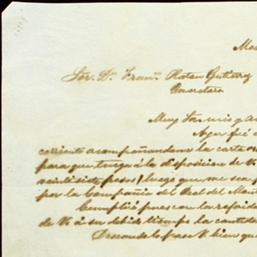 Sor. Dn. Franco. Rotan Gutierrez
Queretaro
Muy Sor. mio y a
Aqui fué
corriente acompañandome la carta
para que tenga á la disposicion de V
veintisiete pesos) luego que me sea
por la Compañia del Real del Mon
Cumpliré pues con la referida
de V. á su debido tiempo la cantida
Deseando lo pase V bien qu